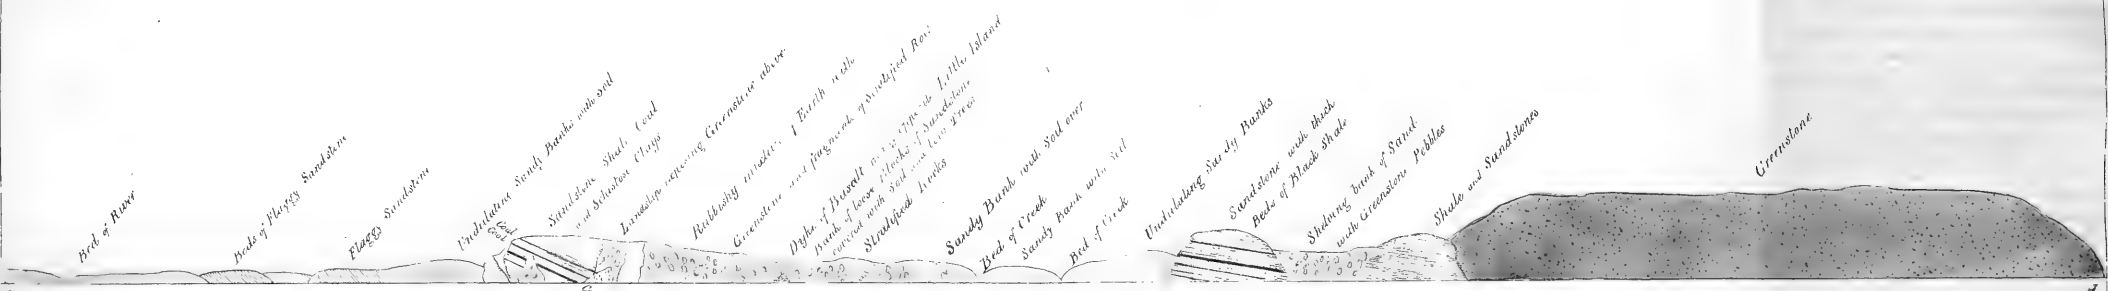 Bed of River
Beds of Flaggy Sandstone
Flaggy Sandstone
Undulating Sandy Banks with soil
Coal
Coal
Sandstone Shale Coal
and Schistose Clays
Landslip exposing Greenstone above
Rubbishy masses of Earth with
Greenstone and fragments of Stratified Rock
Dyke of Basalt opposite Little Island
Bank of loose Blocks of Sandstone
covered with Soil and Trees
Stratified Rocks
Sandy Bank with Soil over
Bed of Creek
Sandy Bank with Soil
Bed of Creek
Undulating Sandy Banks
Sandstone with thick
Beds of Black Shale
Shelving bank of Sand
with Greenstone Pebbles
Shale and Sandstones
Greenstone